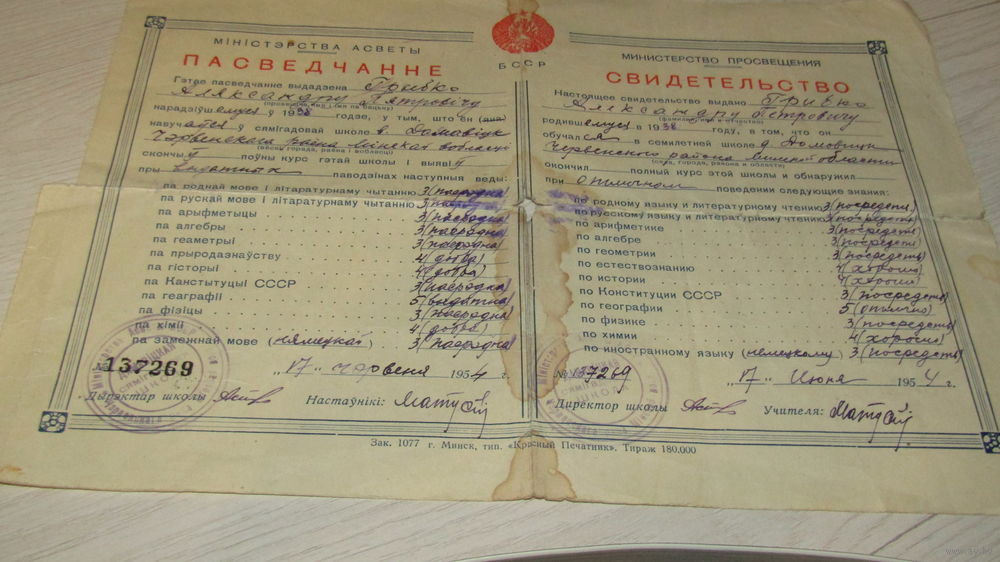 БССР
МІНІСТЭРСТВА АСВЕТЫ
ПАСВЕДЧАННЕ
Гэтае пасведчанне выдадзена Грыбко
Аляксандру Пятровічу
(прозвішча, імя і імя па бацьку)
нарадзіўшемуся ў 1938 годзе, у тым, што ён (яна)
навучаўся ў сямігадовай школе в. Домавіцк
Чэрвенскага раёна Мінскай вобласці
(вёскі, горада, раёна і вобласці)
скончыў поўны курс гэтай школы і выявіў
пры выдатных паводзінах наступныя веды:
па роднай мове і літаратурнаму чытанню 3 (пасрэдна)
па рускай мове і літаратурнаму чытанню 3 (пасрэдна)
па арыфметыцы 3 (пасрэдна)
па алгебры 3 (пасрэдна)
па геаметрыі 3 (пасрэдна)
па прыродазнаўству 4 (добра)
па гісторыі 4 (добра)
па Канстытуцыі СССР 3 (пасрэдна)
па геаграфіі 5 (выдатна)
па фізіцы 3 (пасрэдна)
па хіміі 4 (добра)
па замежнай мове (нямецкай) 3 (пасрэдна)
№ 137269
„17" чэрвеня 1954 г.
Дырэктар школы Настаўнікі:
МИНИСТЕРСТВО ПРОСВЕЩЕНИЯ
СВИДЕТЕЛЬСТВО
Настоящее свидетельство выдано Грибко
Александру Петровичу
(фамилия, имя и отчество)
родившемуся в 1938 году, в том, что он
обучался в семилетней школе д. Домовицк
Червенского района Минской области
(села, города, района и области)
окончил полный курс этой школы и обнаружил
при отличном поведении следующие знания:
по родному языку и литературному чтению 3 (посредств)
по русскому языку и литературному чтению 3 (посредств)
по арифметике 3 (посредств)
по алгебре 3 (посредств)
по геометрии 3 (посредств)
по естествознанию 4 (хорошо)
по истории 4 (хорошо)
по Конституции СССР 3 (посредств)
по географии 5 (отлично)
по физике 3 (посредств)
по химии 4 (хорошо)
по иностранному языку (немецкому) 3 (посредств)
№ 137269
„17" Июня 1954 г.
Директор школы Учителя:
Зак. 1077 г. Минск, тип. «Красный Печатник». Тираж 180.000